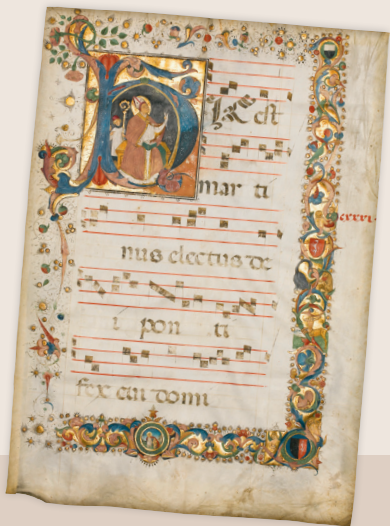 Hic est
mar ti
nus electus de
i pon ti
fex cui domi